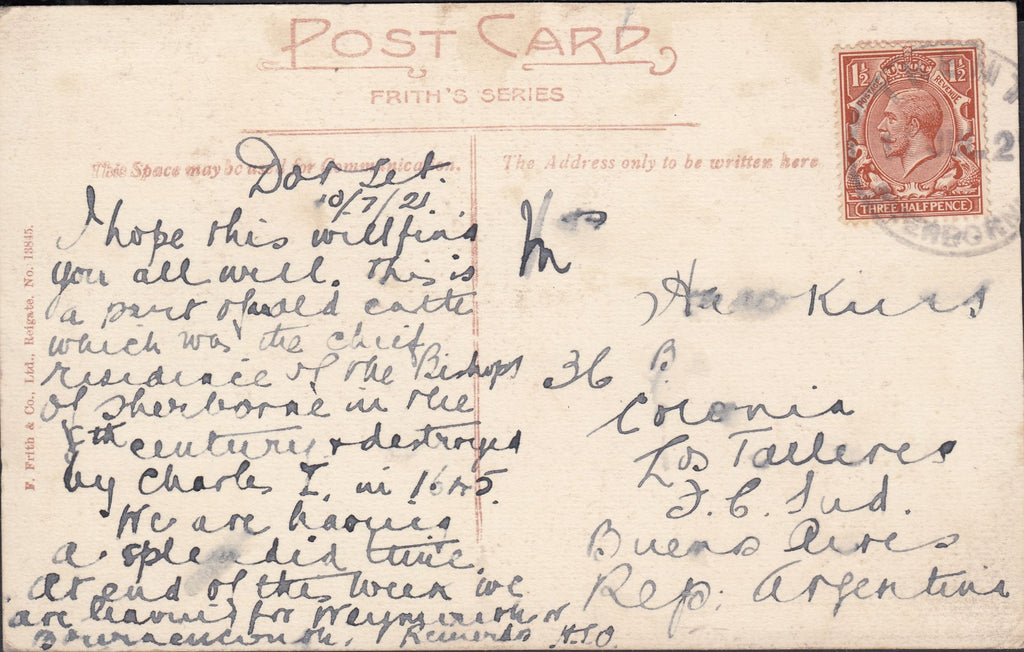 POST CARD
FRITH'S SERIES
This Space may be used for Communication.
The Address only to be written here
1½ 1½
POSTAGE REVENUE
THREE HALFPENCE
F. Frith & Co., Ltd., Reigate. No. 13845.
Dorset.
10/7/21.
I hope this will find
you all well. This is
a part of an old castle
which was the chief
residence of the Bishops
of Sherborne in the
8th century & destroyed
by Charles I. in 1645.
We are having
a splendid time.
At end of this week we
are leaving for Weymouth or
Bournemouth. Recuerdos
Mrs
36 B
Colonia
Los Talleres
F. C. Sud.
Buenos Aires
Rep. Argentina